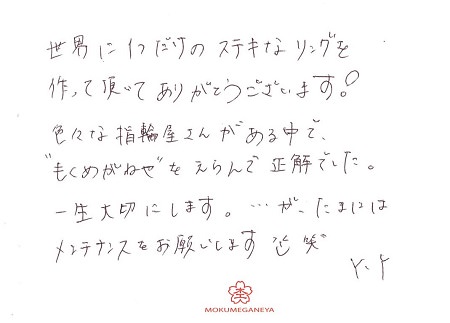 世界に1つだけのステキなリングを
作って頂いてありがとうございます!
色々な指輪屋さんがある中で、
"もくめがねや"をえらんで正解でした。
一生大切にします。…が、たまには
メンテナンスをお願いします 笑"
Y.Y
MOKUMEGANEYA